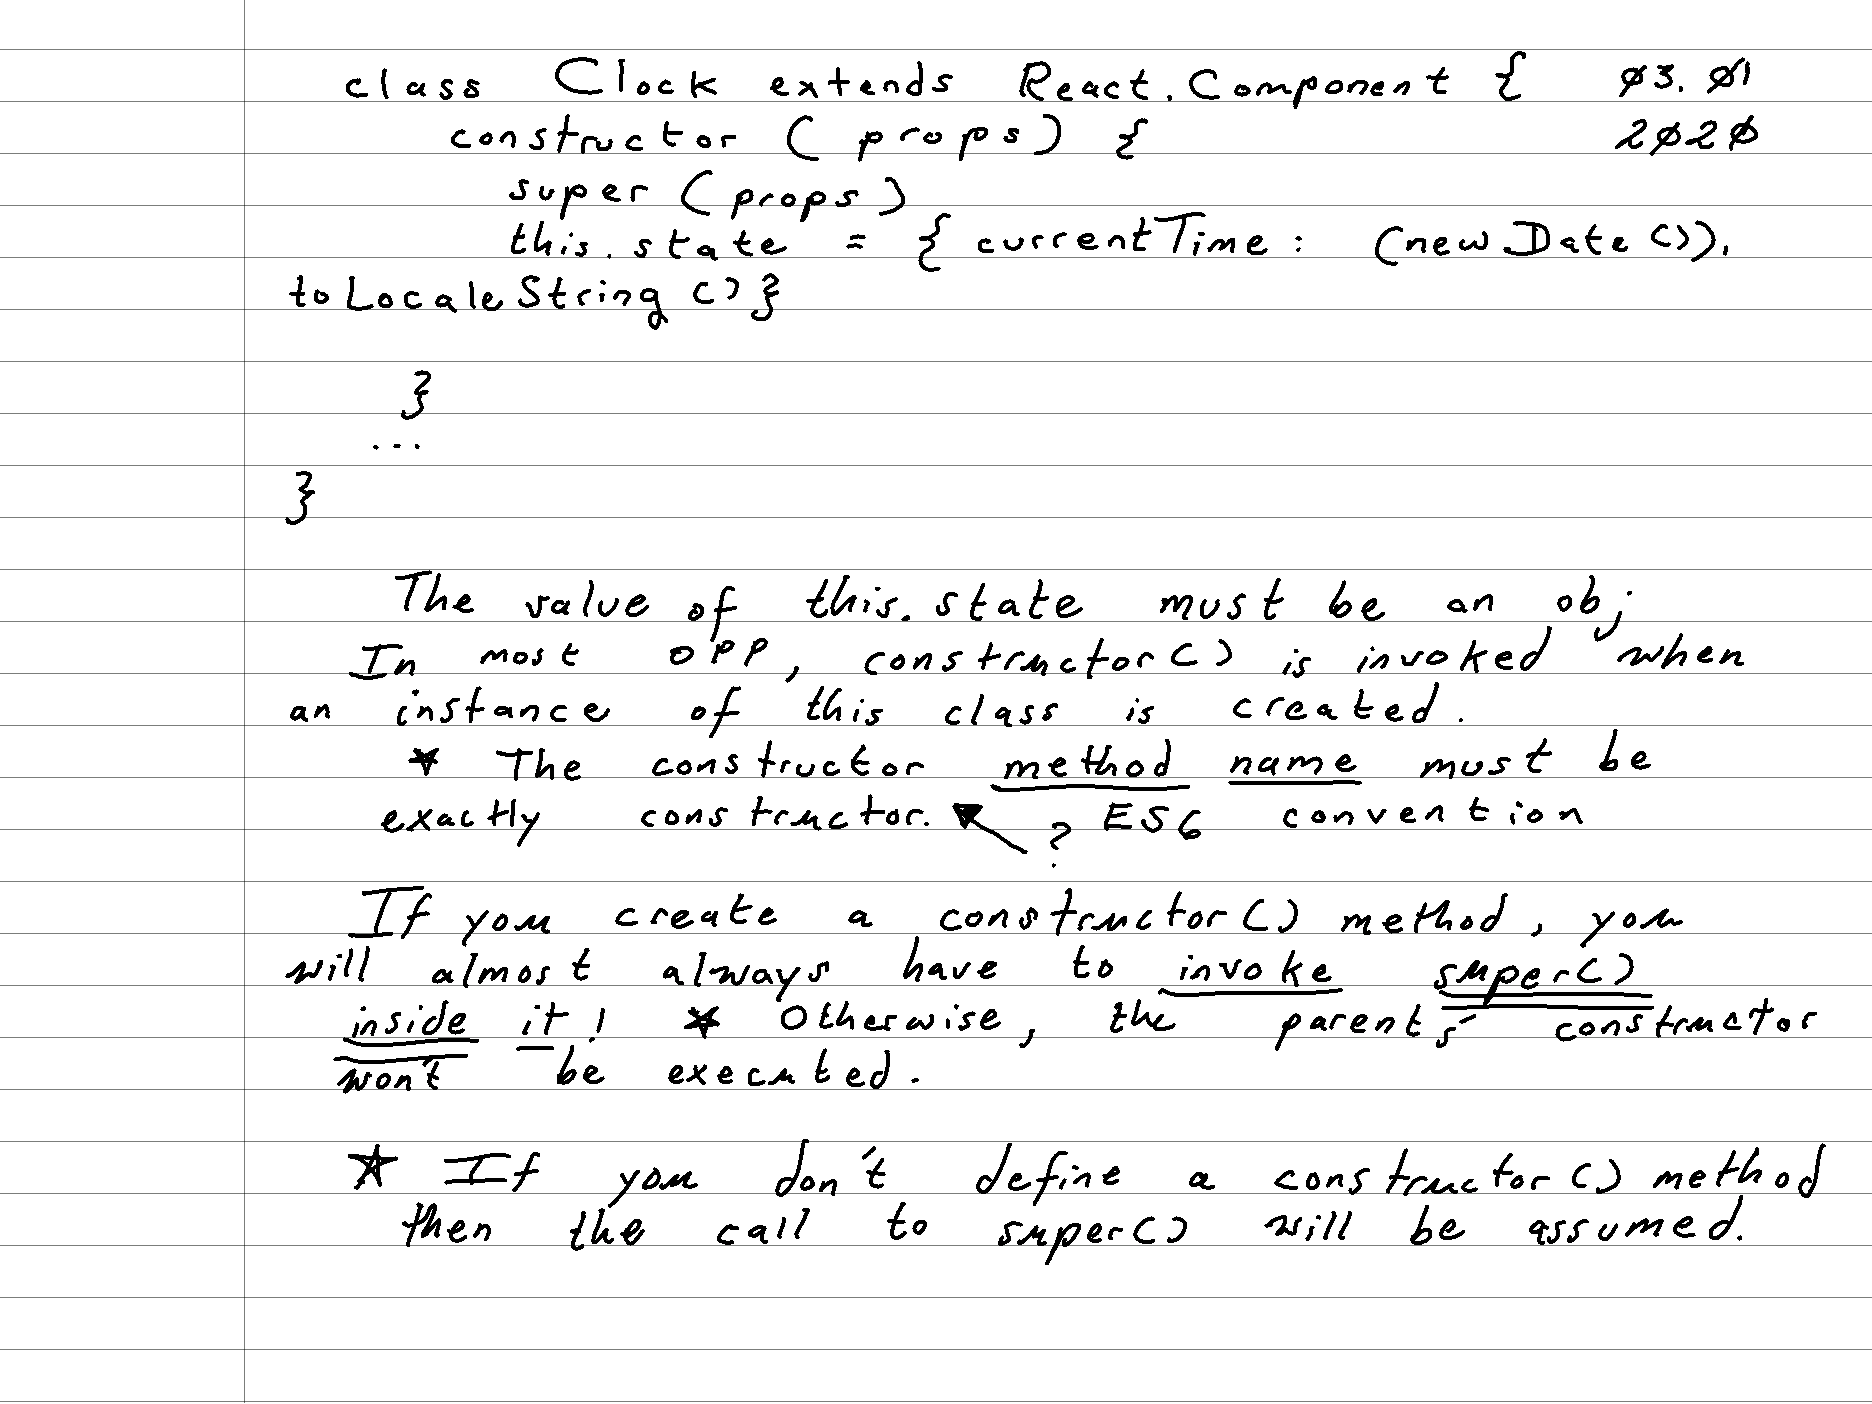 class Clock extends React.Component { 03.01
constructor (props) { 2020
super (props)
this.state = { currentTime: (new Date()).
toLocaleString()}
}
...
}
The value of this.state must be an obj
In most OPP, constructor() is invoked when
an instance of this class is created.
★ The constructor method name must be
exactly constructor. ? ES6 convention
If you create a constructor() method, you
will almost always have to invoke super()
inside it! ★ Otherwise, the parent's constructor
won't be executed.
★ If you don't define a constructor() method
then the call to super() will be assumed.